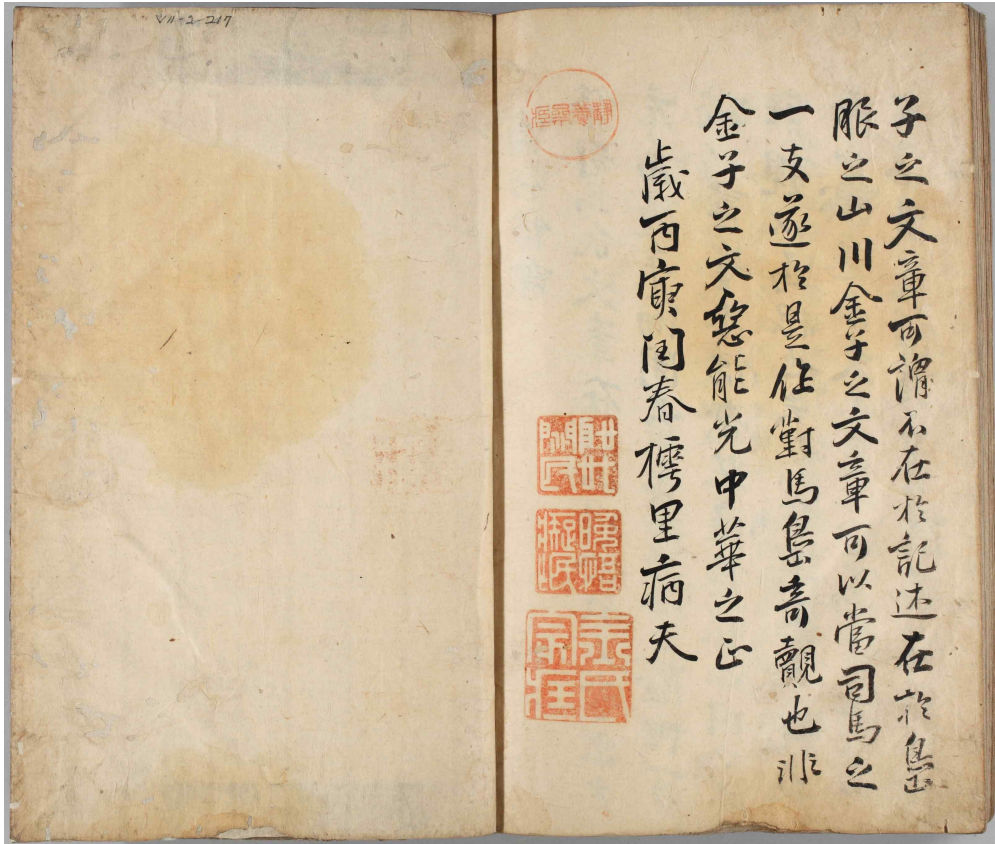 VII-2-217
子之文章可謂不在於記述在於島
服之山川金子之文章可以當司馬之
一支遂於是作對馬島奇觀也非
金子之文懇能光中華之正
歲丙寅閏春樗里病夫